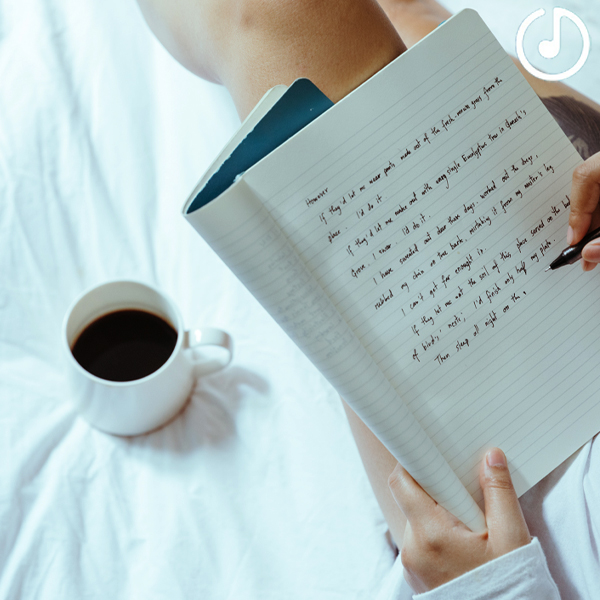 However
If they'd let me wear pants made out of the fresh-mown grass from the
place. I'd do it
If they'd let me make out with every single Eucalyptus tree in Stanuk's,
Grove, I swear I'd do it.
I have sweated out dew these days, worked out the dregs,
rubbed my chin on the bark, mistaking it for my master's leg
I can't get far enough it.
If they let me eat the soil of this place curved in the bed
of birds, nests, I'd finish only half my plate.
Then sleep all night on the